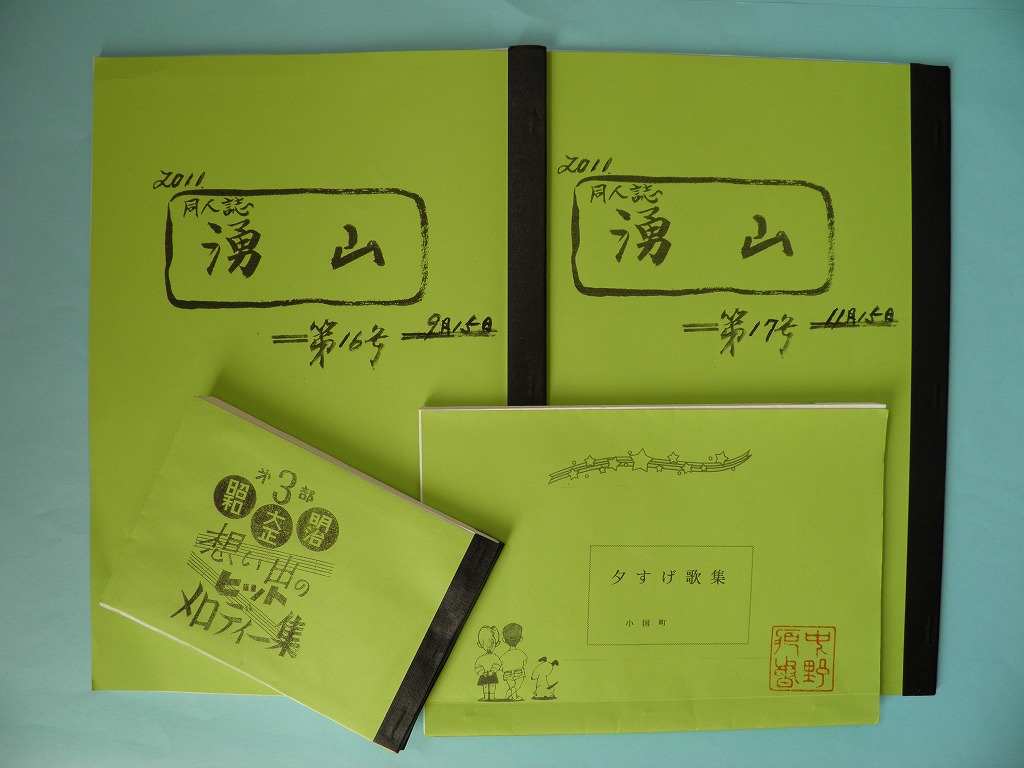 2011
同人誌
湧山
第16号 9月15日
2011
同人誌
湧山
第17号 11月15日
第3部
昭和 大正 明治
想い出の
ヒット
メロディー集
夕すげ歌集
小国町
中野